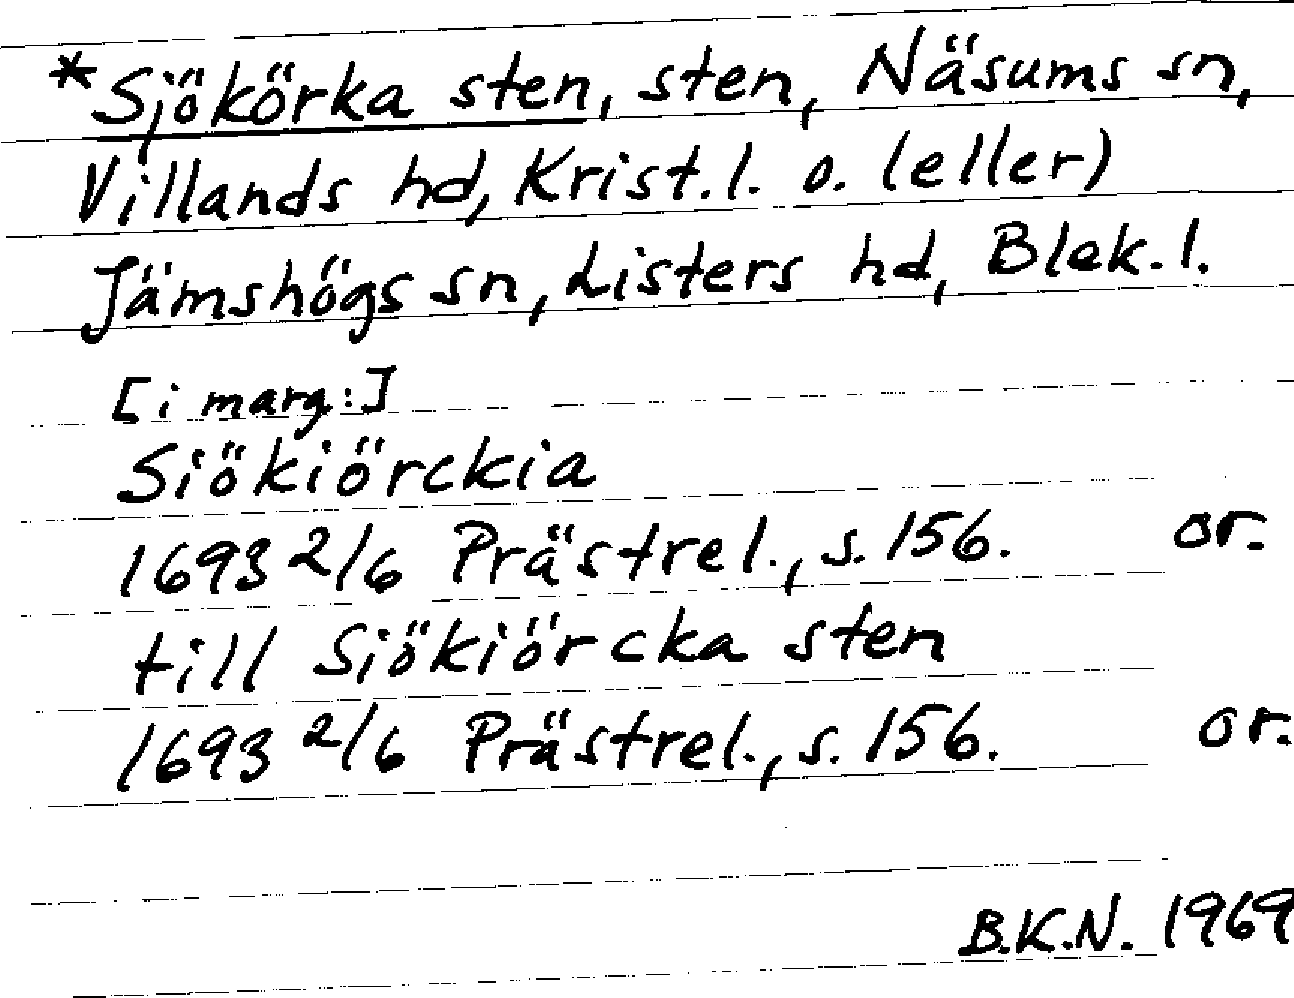 *Sjökörka sten, sten, Näsums sn,
Villands hd, Krist. l. o. (eller)
Jämshögs sn, Listers hd, Blek. l.
[i marg:]
Siökiörckia
1693 2/6 Prästrel., s. 156. or.
till Siökiörcka sten
1693 2/6 Prästrel., s. 156. or.
B.K.N. 1969